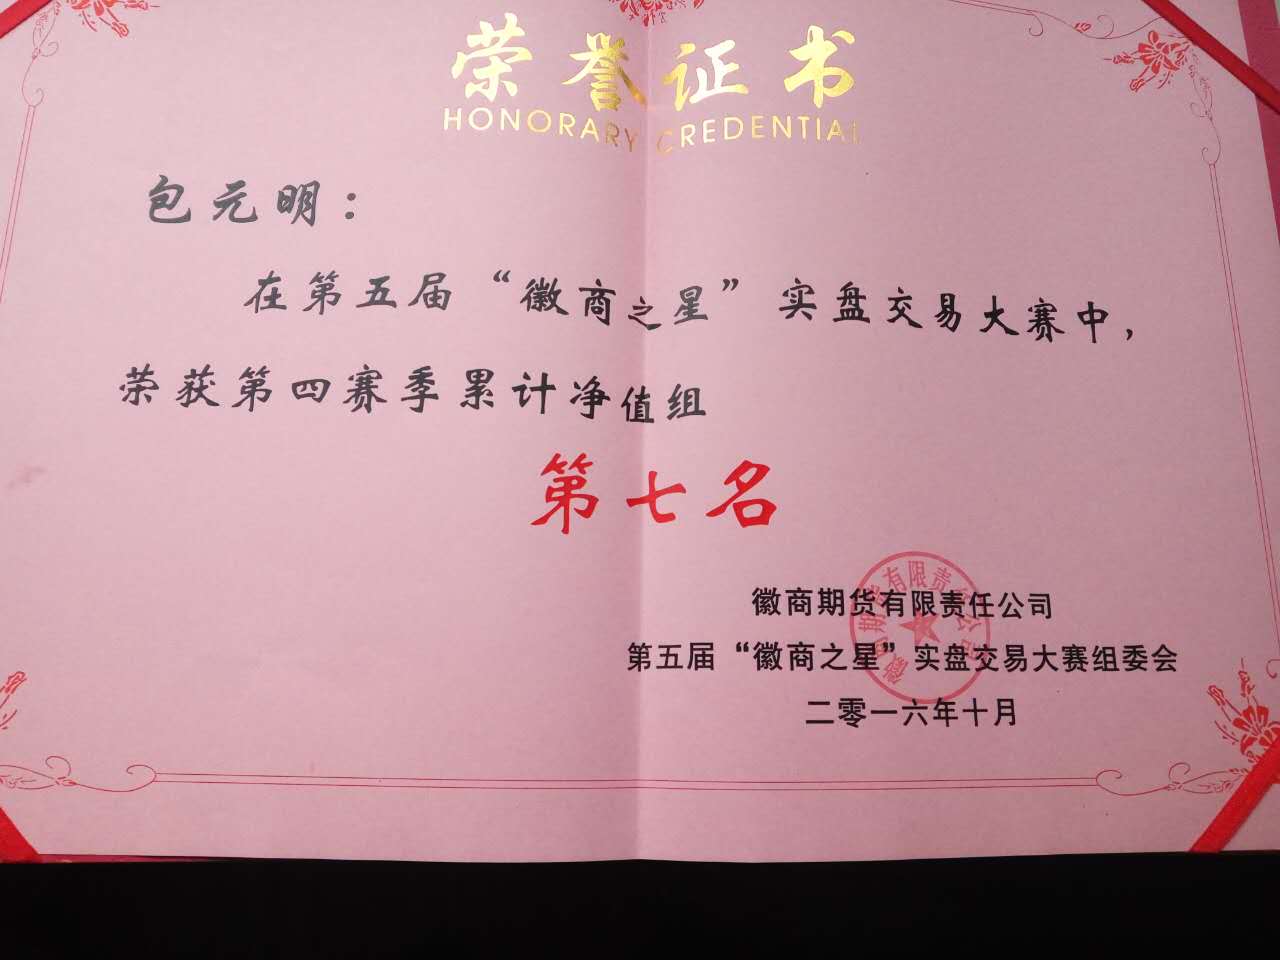 荣誉证书
HONORARY CREDENTIAL
包元明：
在第五届“徽商之星”实盘交易大赛中，
荣获第四赛季累计净值组
第七名
徽商期货有限责任公司
第五届“徽商之星”实盘交易大赛组委会
二零一六年十月
徽商期货有限责任公司